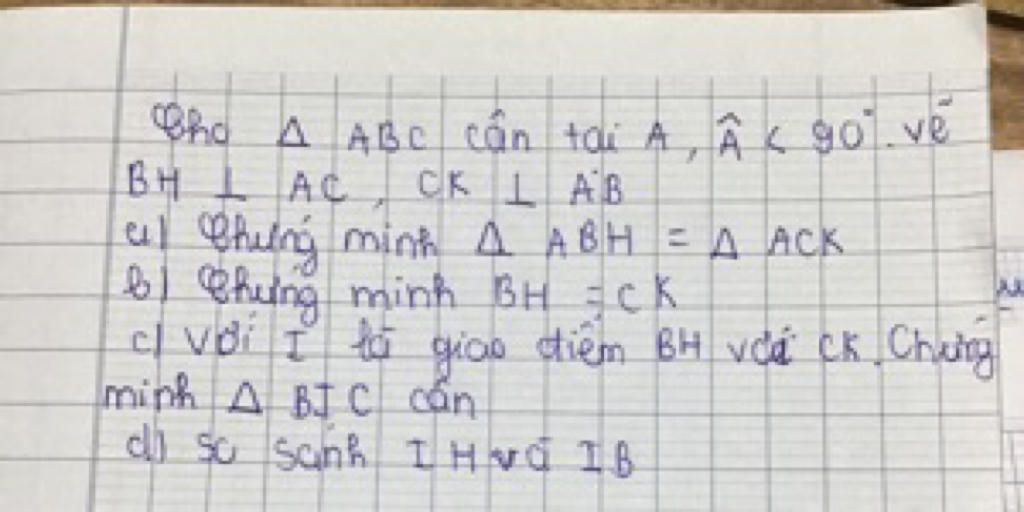 Cho Δ ABC cân tại A, Â < 90°. vẽ
BH ⊥ AC, CK ⊥ AB
a) Chứng minh Δ ABH = Δ ACK
b) Chứng minh BH = CK
c) Với I là giao điểm BH với CK. Chứng
minh Δ BIC cân
d) so sánh IH và IB